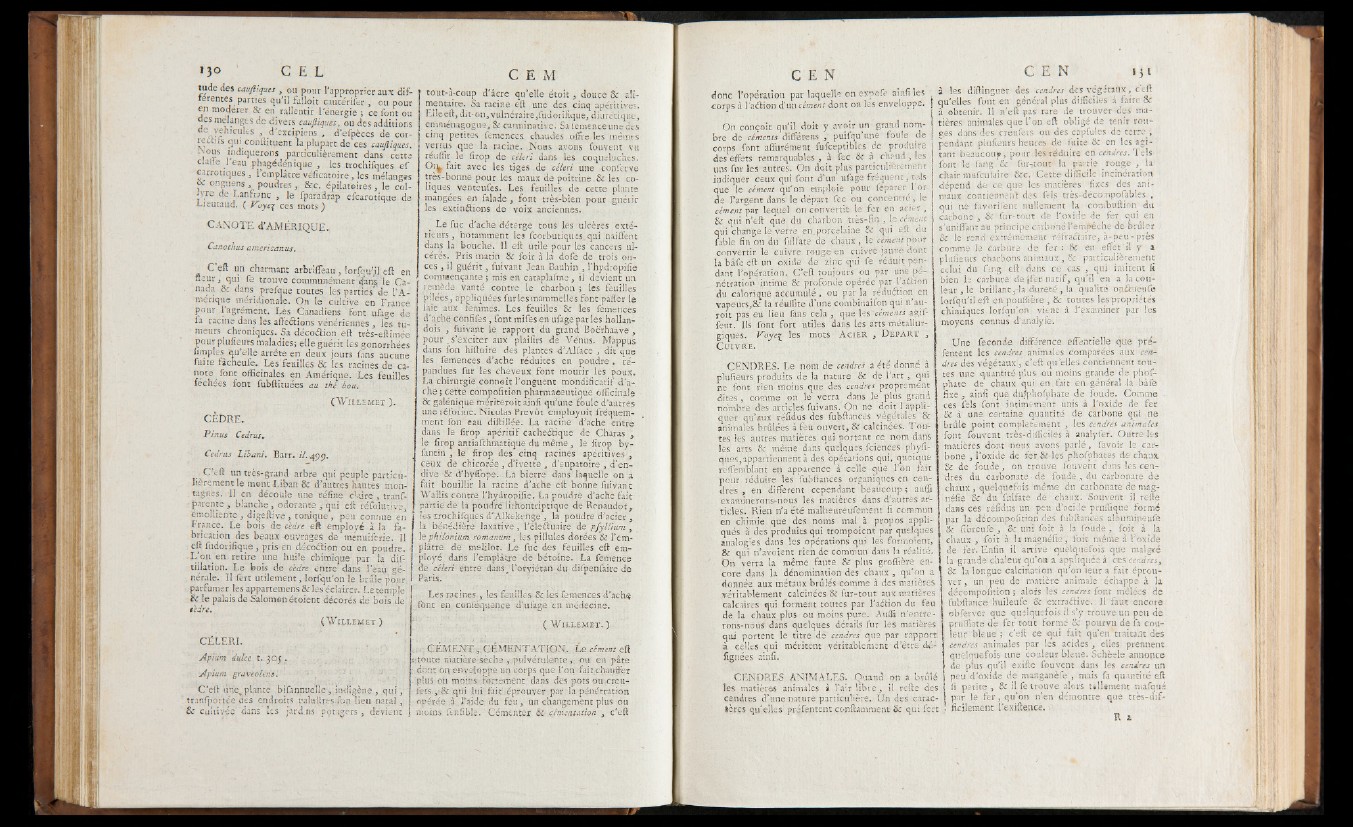 130 C E L
tude des caustiques, ou pour l'approprier aux dif-
férentes parties qu'il falloit cautériser, ou pour
en modérer & en rallentir l'énergie ; ce sont ou
des mélanges de divers caustiques, ou des additions
de véhicules, d'excipiens, d'espèces de cor-
rectifs qui constituent la plupart de ces caustiques.
Nous indiquerons particulièrement dans cette
classe l'eau phagédénique, les trochisques es-
carrotiques, l'emplâtre vésicatoire, les mélanges
& onguens, poudres, &c. épilatoires, le col-
lyre de Lanfranc, le sparadrap escarotique de
Lieutaud. (Voyez ces mots)
CANOTE d'AMÉRIQUE.
Canothus americanus.
C'est un charmant arbrisseau, lorsqu'il est en
fleur, qui se trouve communément dans le Ca-
nada & dans presque toutes les parties de l'A-
mérique méridionale. On le cultive en France
pour l'agrément. Les Canadiens font usage de
sa racine dans les affections vénériennes, les tu-
meurs chroniques. Sa décoction est très-estimée
pour plusieurs maladies; elle guérit les gonorrhées
simples qu'elle arrête en deux jours sans aucune
suite fâcheuse. Les feuilles & les racines de ca-
note sont officinales en Amérique. Les feuilles
séchées sont substituées au thé bou.
(WILLEMET).
CÈDRE.
Pinus Cedrus.
Cedrus Libani. Barr. il. 499.
C'est un très-grand arbre qui peuple particu-
lièrement le mont Liban & d'autres hautes mon-
tagnes. Il en découle une résine claire, trans-
parente, blanche, odorante, qui est résolutive,
émolliente, digestive, tonique, peu connue en
France. Le bois de cèdre est employé à la fa-
brication des beaux ouvrages de menuiserie. Il
est sudorifique, pris en décoction ou en poudre.
L'on en retire une huile chimique par la dis-
tillation. Le bois de cèdre entre dans l'eau gé-
nérale. Il sert utilement, lorsqu'on le brûle pour
parfumer les appartemens & les éclairer. Le temple
& le palais de Salomon étoient décorés de bois de
cèdre.
(WILLEMET)
CÉLERI.
Apium dulce t. 305.
Apium graveolens.
C'est une plante bisannuelle, indigène, qui,
transportée des endroits palustres son lieu natal,
& cultivée dans les jardins potagers, devient
C E M
tout-à-coup d'âcre qu'elle étoit, douce & ali-
mentaire. Sa racine est une des cinq apéritives.
Elle est, dit-on, vulnéraire, sudorifique, diurétique,
emménagogue, & carminative. Sa semence une des
cinq petites semences chaudes offre les mêmes
vertus que la racine. Nous avons souvent vu
réussir le sirop de céleri dans les coqueluches.
On fait avec les tiges de céleri une conserve
très-bonne pour les maux de poitrine & les co-
liques venteuses. Les feuilles de cette plante
mangées en salade, sont très-bien pour guérir
les extinctions de voix anciennes.
Le suc d'ache déterge tous les ulcères exté-
rieurs, notamment les scorbutiques qui naissent
dans la bouche. Il est utile pour les cancers ul-
cérés. Pris matin & soir à la dose de trois on-
ces, il guérit, suivant Jean Bauhin, l'hydropisie
commençante ; mis en cataplasme, il devient un
remède vanté contre le charbon ; les feuilles
pilées, appliquées sur les mammelles font passer le
lait aux femmes. Les feuilles & les semences
d'ache confites, sont mises en usage par les hollan-
dois, suivant le rapport du grand Boërhaave,
pour s'exciter aux plaisirs de Vénus. Mappus
dans son histoire des plantes d'Alsace, dit que
les semences d'ache réduites en poudre, ré-
pandues sur les cheveux font mourir les poux.
La chirurgie connoît l'onguent mondificatif d'a-
che ; cette composition pharmaceutique officinale
& galénique mériteroit ainsi qu'une foule d'autres
une réforme. Nicolas Prevôt employoit fréquem-
ment son eau distillée. La racine d'ache entre
dans le sirop apéritif cachectique de Charas,
le sirop antiasthmatique du même, le sirop by-
santin, le sirop des cinq racines apéritives,
ceux de chicorée, d'ivette, d'eupatoire, d'en-
dive & d'hyssope. La bierre dans laquelle on a
fait bouillir la racine d'ache est bonne suivant
Wallis contre l'hydropisie. La poudre d'ache fait
partie de la poudre lithontriptique de Renaudot,
les trochisques d'Alkekenge, la poudre d'acier,
la bénédicte laxative, l'électuaire de psyllium,
le philonium romanum, les pillules dorées & l'em-
plâtre de melilot. Le suc des feuilles est em-
ployé dans l'emplâtre de bétoine. La semence
de céleri entre dans l'orviétan du dispensaire de
Paris.
Les racines, les feuilles & les semences d'ache
sont en conséquence d'usage en médecine.
(WILLEMET.)
CÉMENT, CÉMENTATION. Le cément est
toute matière sèche, pulvérulente, ou en pâte
dont on enveloppe un corps que l'on fait chauffer
plus ou moins fortement dans des pots ou creu-
sets, & qui lui fait éprouver par la pénétration
opérée à l'aide du feu, un changement plus ou
moins sensible. Cémenter & cémentation, c'est
C E N
donc l'opération par laquelle on expose ainsi les
corps à l'action d'un cément dont on les enveloppe.
On conçoit qu'il doit y avoir un grand nom-
bre de céments différens, puisqu'une foule de
corps sont assurément susceptibles de produire
des effets remarquables, à sec & à chaud, les
uns sur les autres. On doit plus particulièrement
indiquer ceux qui sont d'un usage fréquent, tels
que le cément qu'on emploie pour séparer l'or
de l'argent dans le départ sec ou concentré, le
cément par lequel on convertit le fer en acier,
& qui n'est que du charbon très-fin, le cément
qui change le verre en porcelaine & qui est du
sable fin ou du sulfate de chaux, le cément pour
convertir le cuivre rouge en cuivre jaune dont
la base est un oxide de zinc qui se réduit pen-
dant l'opération. C'est toujours ou par une pé-
nétration intime & profonde opérée par l'action
du calorique accumulé, ou par la réduction en
vapeurs, & la réussite d'une combinaison qui n'au-
roit pas eu lieu sans cela, que les céments agis-
sent. Ils sont fort utiles dans les arts métallur-
giques. Voyez les mots ACIER, DEPART,
CUIVRE.
CENDRES. Le nom de cendres a été donné à
plusieurs produits de la nature & de l'art, qui
ne sont rien moins que des cendres proprement
dites, comme on le verra dans le plus grand
nombre des articles suivans. On ne doit l'appli-
quer qu'aux résidus des substances végétales &
animales brûlées à feu ouvert, & calcinées. Tou-
tes les autres matières qui portent ce nom dans
les arts & même dans quelques sciences physi-
ques, appartiennent à des opérations qui, quoique
ressemblant en apparence à celle que l'on fait
pour réduire les substances organiques en cen-
dres, en diffèrent cependant beaucoup ; aussi
examinerons-nous les matières dans d'autres ar-
ticles. Rien n'a été malheureusement si commun
en chimie que des noms mal à propos appli-
qués à des produits qui trompoient par quelques
analogies dans les opérations qui les formoient,
& qui n'avoient rien de commun dans la réalité.
On verra la même faute & plus grossière en-
core dans la dénomination des chaux, qu'on a
donnée aux métaux brûlés comme à des matières
véritablement calcinées & sur-tout aux matières
calcaires qui forment toutes par l'action du feu
de la chaux plus ou moins pure. Aussi n'entre-
rons-nous dans quelques détails sur les matières
qui portent le titre de cendres que par rapport
à celles qui méritent véritablement d'être dé-
signées ainsi.
CENDRES ANIMALES. Quand on a brûlé
les matières animales à l'air libre, il reste des
cendres d'une nature particulière. Un des carac-
tères qu'elles présentent constamment & qui sert
C E N 131
à les distinguer des cendres des végétaux, c'est
qu'elles sont en général plus difficiles à faire &
à obtenir. Il n'est pas rare de trouver des ma-
tières animales que l'on est obligé de tenir rou-
ges dans des creusets ou des capsules de terre,
pendant plusieurs heures de suite & en les agi-
tant beaucoup, pour les réduire en cendres. Tels
sont le sang & sur-tout la partie rouge, la
chair musculaire &c. Cette difficile incinération
dépend de ce que les matières fixes des ani-
maux contiennent des sels très-décomposables,
qui ne favorisent nullement la combustion du
carbone, & sur-tout de l'oxide de fer qui en
s'unissant au principe carboné l'empêche de brûler
& le rend extrêmement réfractaire, à-peu-près
comme le carbure de fer : & en effet il y a
plusieurs charbons animaux, & particulièrement
celui du sang est dans ce cas, qui imitent si
bien le carbure de fer natif, qu'il en a la cou-
leur, le brillant, la dureté, la qualité onctueuse
lorsqu'il est en poussière, & toutes les propriétés
chimiques lorsqu'on vient à l'examiner par les
moyens connus d'analyse.
Une seconde différence essentielle que pré-
sentent les cendres animales comparées aux cen-
dres des végétaux, c'est qu'elles contiennent tou-
tes une quantité plus ou moins grande de phos-
phate de chaux qui en fait en général la base
fixe, ainsi que du phosphate de soude. Comme
ces sels sont intimement unis à l'oxide de fer
& à une certaine quantité de carbone qui ne
brûle point complettement, les cendres animales
sont souvent très-difficiles à analyser. Outre les
matières dont nous avons parlé, savoir le car-
bone, l'oxide de fer & les phosphates de chaux
& de soude, on trouve souvent dans les cen-
dres du carbonate de soude, du carbonate de
chaux, quelquefois même du carbonate de mag-
nésie & du sulfate de chaux. Souvent il reste
dans ces résidus un peu d'acide prussique formé
par la décomposition des substances albumineuse
& fibreuse, & uni soit à la soude, soit à la
chaux, soit à la magnésie, soit même à l'oxide
de fer. Enfin il arrive quelquefois que malgré
la grande chaleur qu'on a appliquée à ces cendres,
& la longue calcination qu'on leur a fait éprou-
ver, un peu de matière animale échappe à la
décomposition ; alors les cendres sont mêlées de
substance huileuse & extractive. Il faut encore
observer que quelquefois il s'y trouve un peu de
prussiate de fer tout formé & pourvu de sa cou-
leur bleue ; c'est ce qui fait qu'en traitant des
cendres animales par les acides, elles prennent
quelquefois une couleur bleue. Schèele annonce
de plus qu'il existe souvent dans les cendres un
peu d'oxide de manganèse, mais sa quantité est
si petite, & il se trouve alors tellement masqué
par le fer, qu'on n'en démontre que très-dif-
ficilement l'existence.
R 2